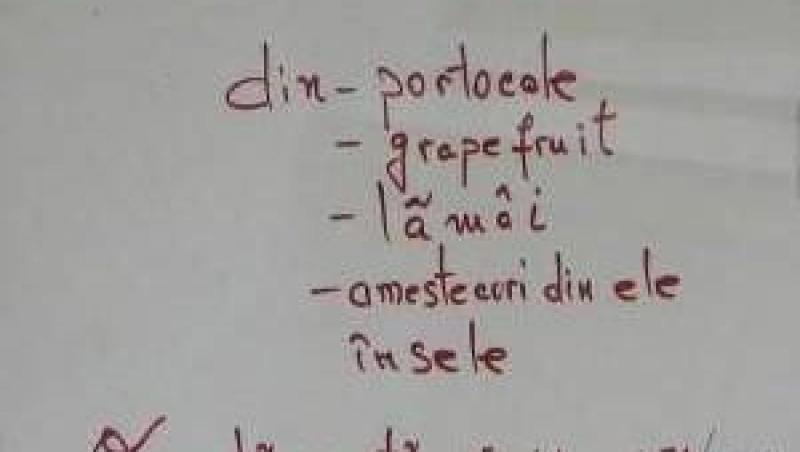 din - portocale
- grapefruit
- lămâi
- amestecuri din ele
însele